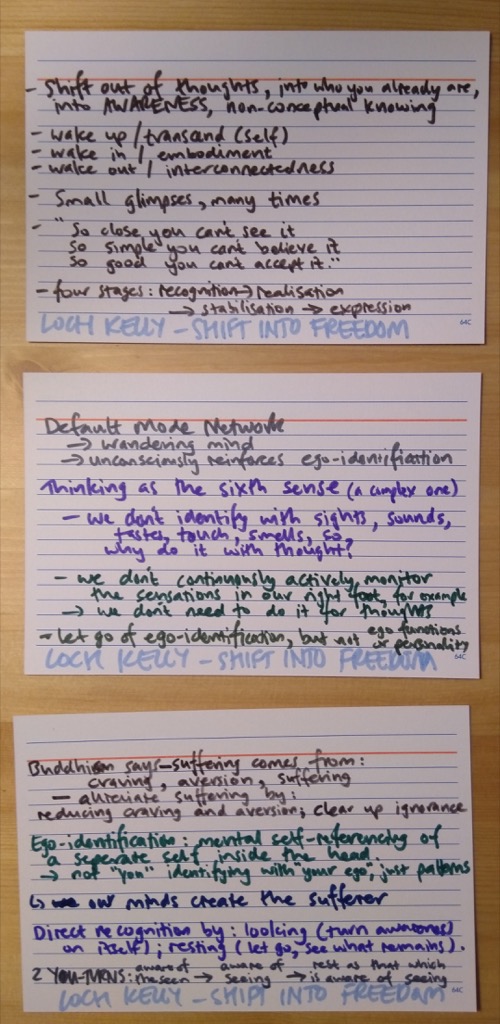 - Shift out of thoughts, into who you already are,
into AWARENESS, non-conceptual knowing
- wake up / transcend (self)
- wake in / embodiment
- wake out / interconnectedness
- Small glimpses, many times
- "So close you can't see it
So simple you can't believe it
So good you can't accept it."
- four stages: recognition → realisation
→ stabilisation → expression
LOCH KELLY - SHIFT INTO FREEDOM
64C
Default Mode Network
→ wandering mind
→ unconsciously reinforces ego-identification
Thinking as the sixth sense (a complex one)
- we don't identify with sights, sounds,
tastes, touch, smells, so
why do it with thought?
- we don't continuously actively monitor
the sensations in our right foot, for example
→ we don't need to do it for thoughts
- let go of ego-identification, but not ego functions
or personality
LOCH KELLY - SHIFT INTO FREEDOM
64C
Buddhism says - suffering comes from:
craving, aversion, suffering
- alleviate suffering by:
reducing craving and aversion; clear up ignorance
Ego-identification: mental self-referencing of
a seperate self inside the head
→ not "you" identifying with "your ego", just patterns
↳ our minds create the sufferer
Direct recognition by: looking (turn awareness
on itself); resting (let go, see what remains).
2 YOU-TURNS: aware of the seen → aware of seeing → rest as that which is aware of seeing
LOCH KELLY - SHIFT INTO FREEDOM
64C